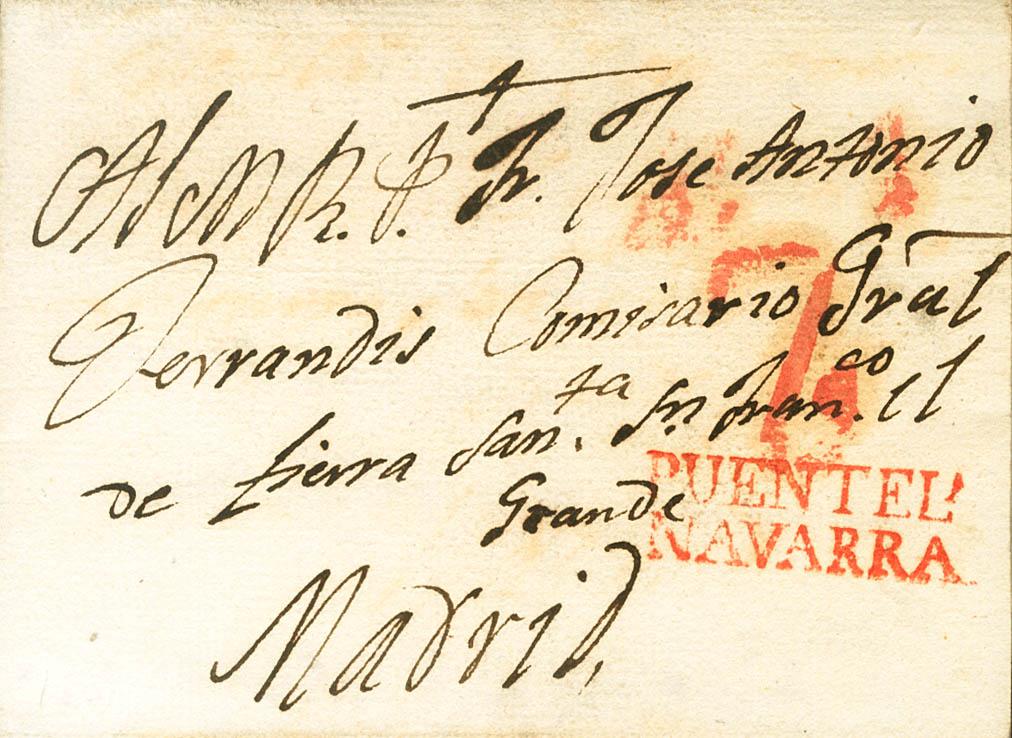 Al M R. P. Fr. Jose Antonio
Ferrandis Comisario Grãl
de tierra San.ta Sn. Fran.co el
Grande
Madrid,
7
PUENTEL
NAVARRA